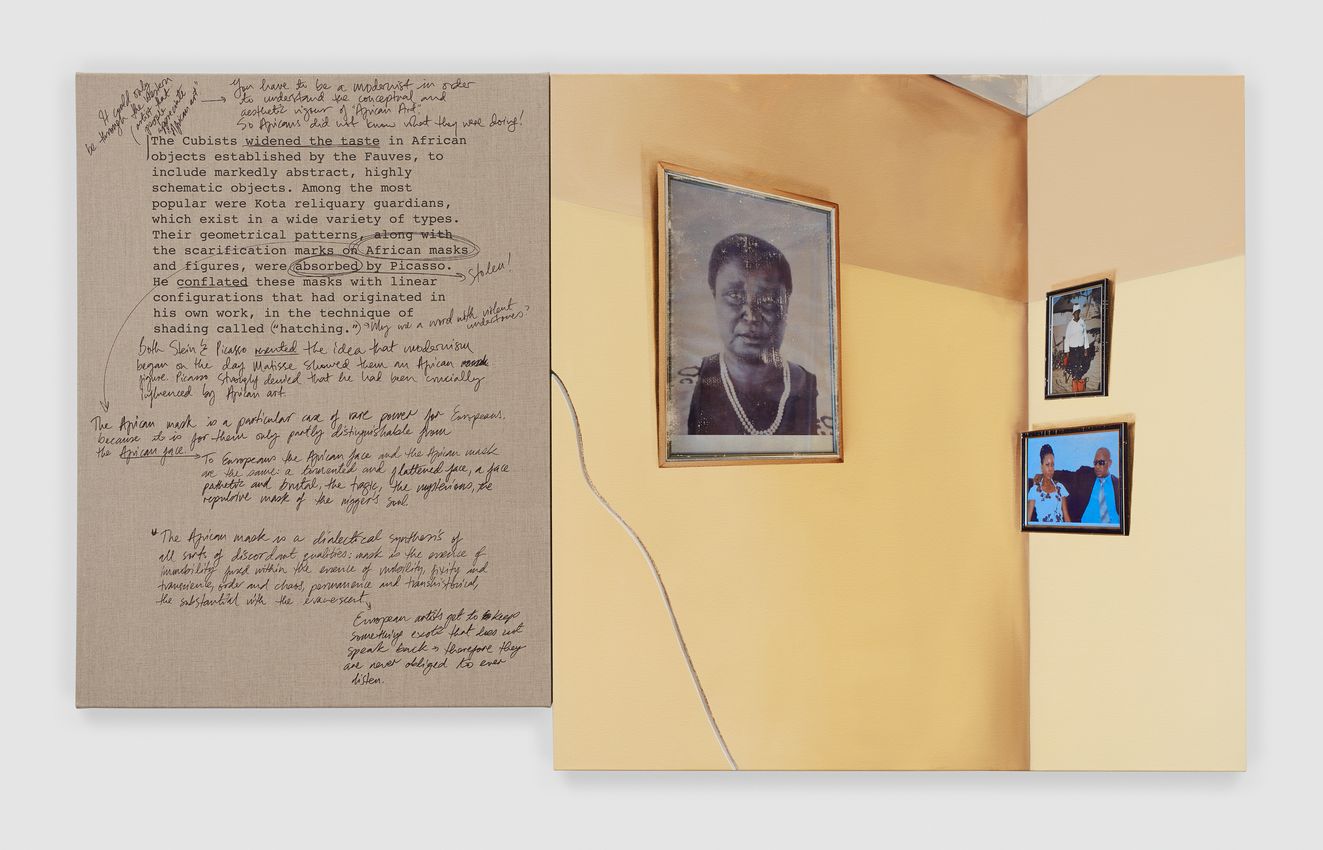 It could only
be through the western
artist that
people
appreciate
African art."
You have to be a modernist in order
to understand the conceptual and
aesthetic vigour of "African Art".
So Africans did not know what they were doing!
The Cubists widened the taste in African
objects established by the Fauves, to
include markedly abstract, highly
schematic objects. Among the most
popular were Kota reliquary guardians,
which exist in a wide variety of types.
Their geometrical patterns, along with
the scarification marks on African masks
and figures, were absorbed by Picasso.
stolen!
He conflated these masks with linear
configurations that had originated in
his own work, in the technique of
shading called ("hatching.")
Why use a word with violent
undertones?
Both Stein & Picasso resented the idea that modernism
began on the day Matisse showed them an African
figure. Picasso strongly denied that he had been crucially
influenced by African art
The African mask is a particular case of rare power for Europeans.
because it is for them only partly distinguishable from
the African face.
To Europeans the African face and the African mask
are the same: a tormented and flattened face, a face
pathetic and brutal, the tragic, the mysterious, the
repulsive mask of the nigger's soul.
"The African mask is a dialectical synthesis of
all sorts of discordant qualities: mask is the essence of
immobility fixed within the essence of mobility, fixity and
transience, order and chaos, permanence and transhistorical,
the substantial with the evanescent
European artists get to keep
something exotic that does not
speak back therefore they
are never obliged to ever
listen.